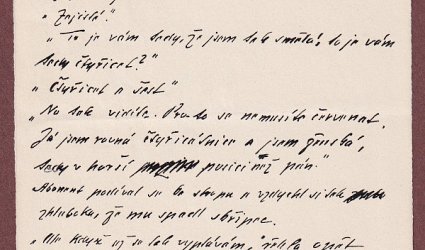 "Zajisté."
"To je vám tedy, že jsem tak smělá, to je vám
tedy čtyřicet?"
"Čtyřicet a šest"
"No tak vidíte. Pro to se nemusíte červenat.
Já jsem rovná čtyřicátnice a jsem ženská,
tedy v horší posici než pán."
Abonent podíval se do stropu a vzdychl si tak
zhluboka, že mu spadl skřipec.
"Ale když už se tak vyptávám," řekla opět